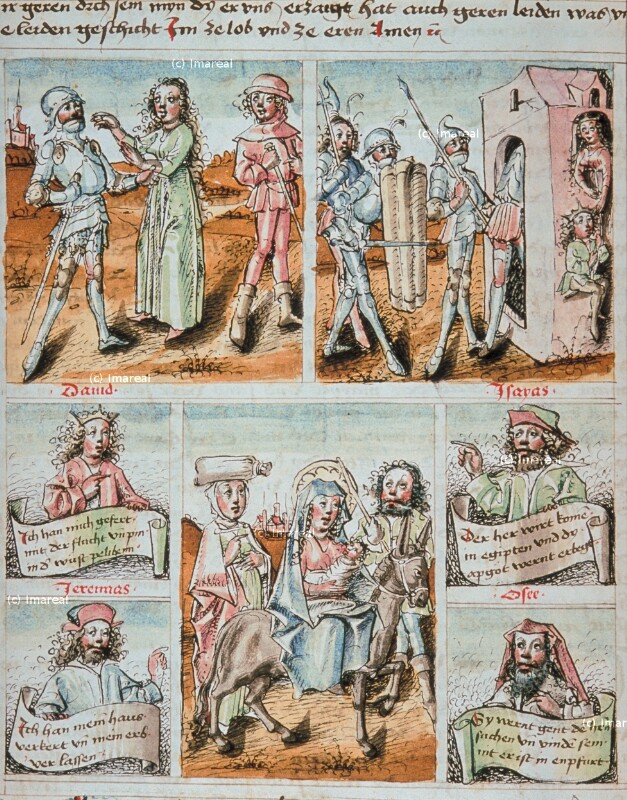 geren dzch sem myn dz er vns erzaigt hat auch geren leiden was
leiden geschicht Im ze lob vnd ze eren Amen
(c) Imareal
(c) Imareal
(c) Imareal
Dauid ·
Isayas ·
Ich han mich gefert
mit der flucht vn pin
in d' wust peliben
(c) Imareal
Der her wirt kome
in egipten vnd dy
apgot wernt
Jeremias ·
Osee ·
(c) Imareal
Ich han mein haus
verkert vn mein erb
ver lassen
Sy wernt gent
suchen vn vinde
nit er ist in enpfurt
(c) Imareal